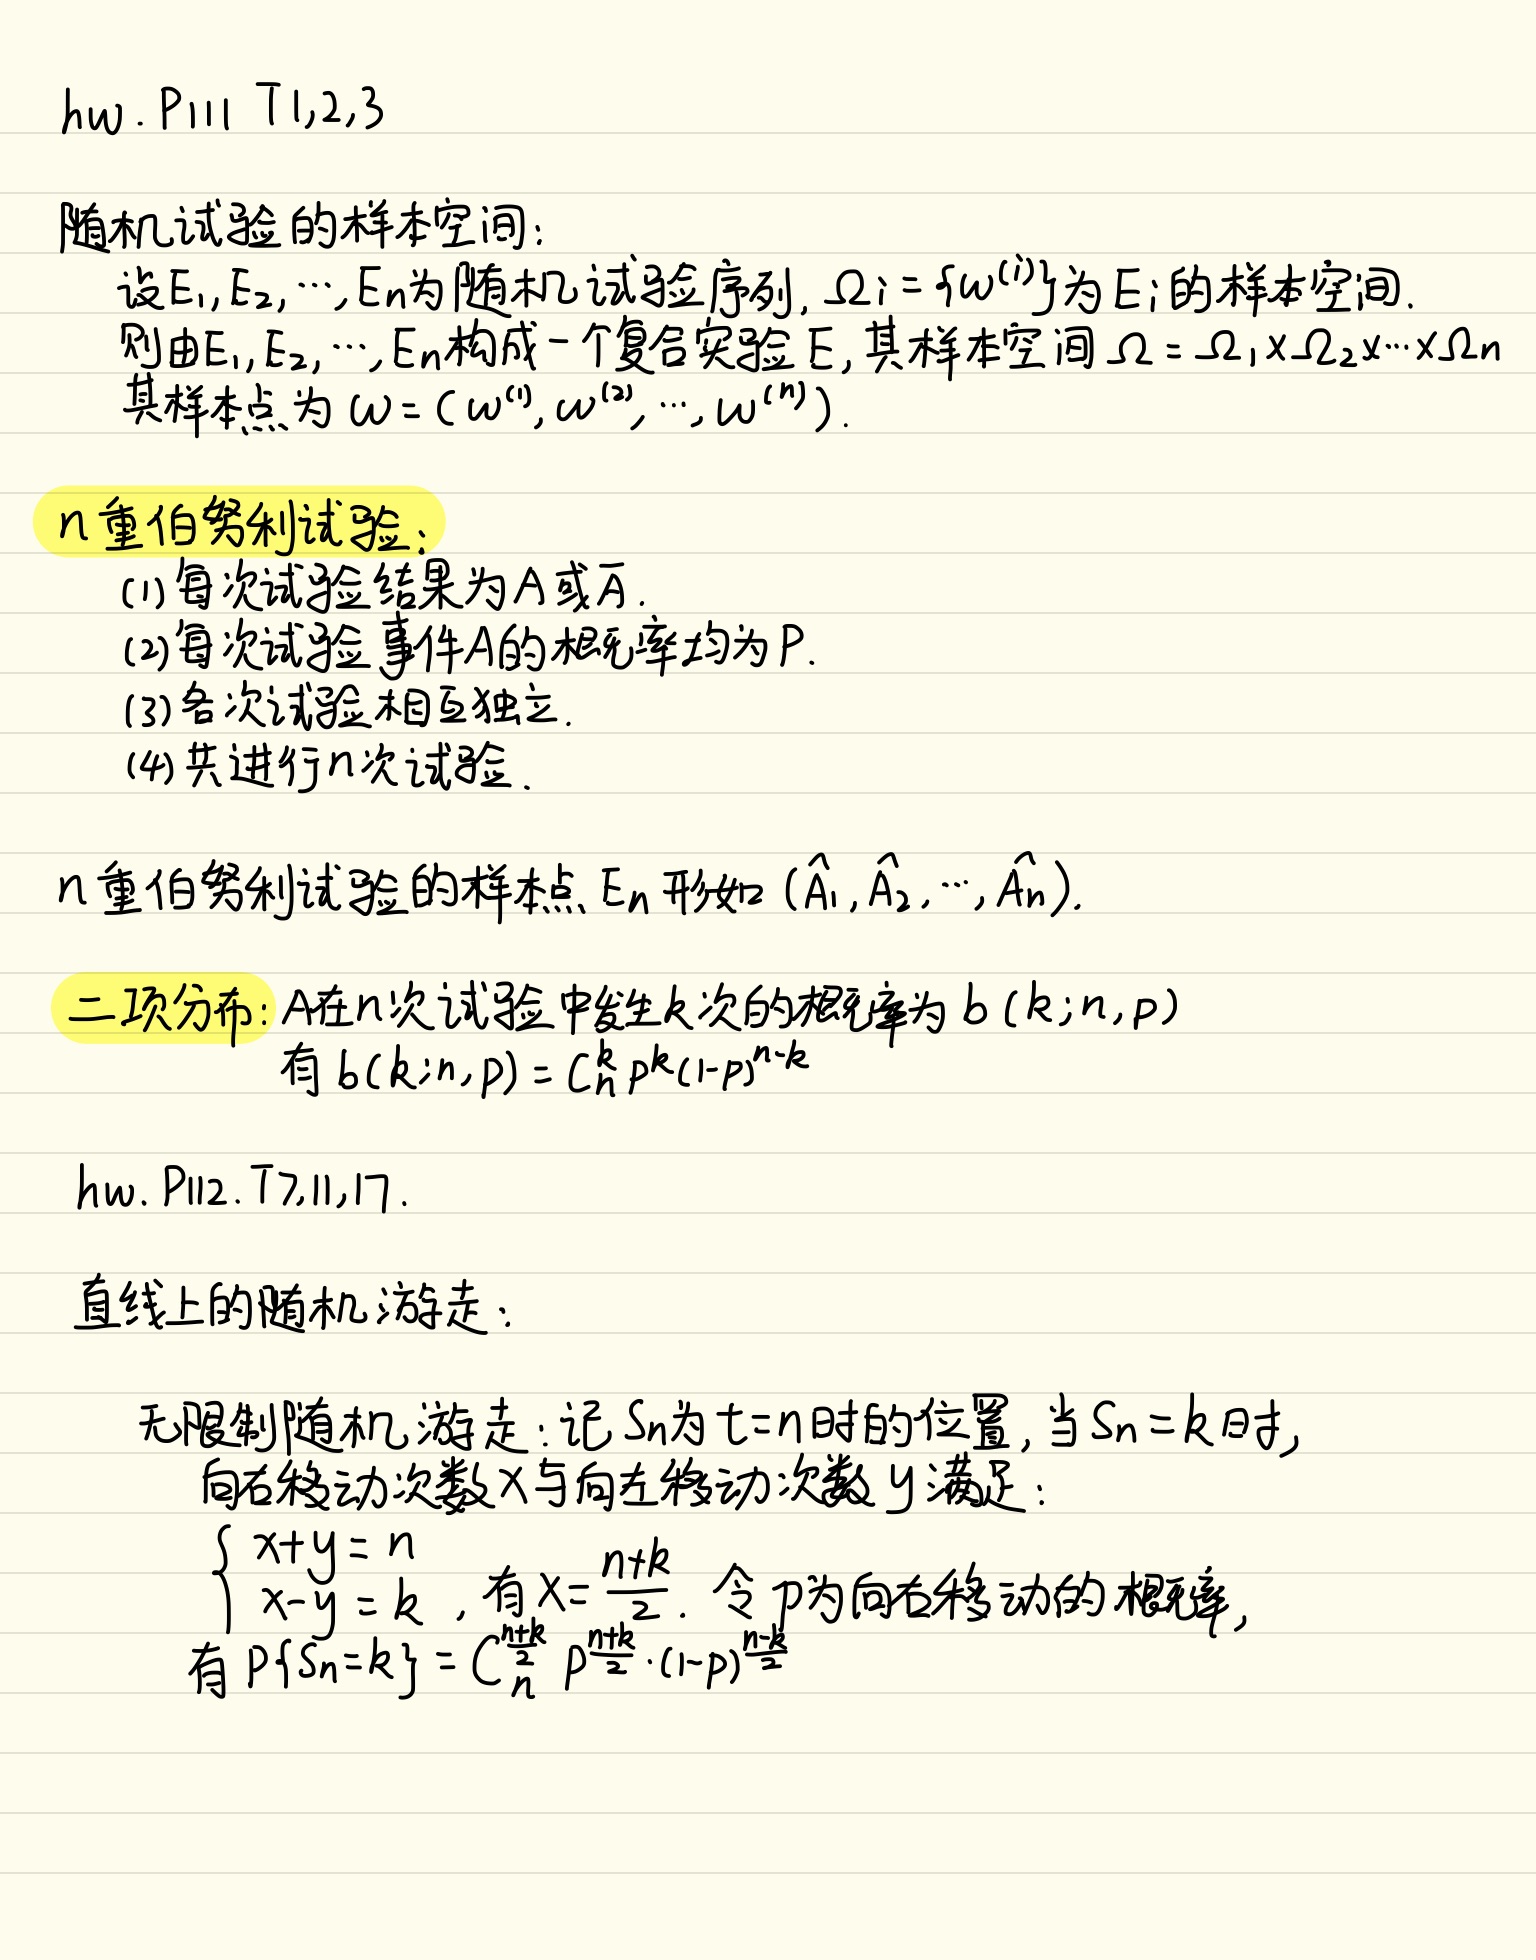 hw. P111 T1,2,3
随机试验的样本空间:
设E₁,E₂,⋯,En为随机试验序列, Ωi={ω⁽ⁱ⁾}为Ei的样本空间.
则由E₁,E₂,⋯,En构成一个复合实验E,其样本空间Ω=Ω₁×Ω₂×⋯×Ωn
其样本点为ω=(ω⁽¹⁾,ω⁽²⁾,⋯,ω⁽ⁿ⁾).
n重伯努利试验:
(1)每次试验结果为A或Ā.
(2)每次试验事件A的概率均为P.
(3)各次试验相互独立.
(4)共进行n次试验.
n重伯努利试验的样本点En形如(Â₁,Â₂,⋯,Ân).
二项分布:A在n次试验中发生k次的概率为b(k;n,p)
有b(k;n,p)=C_n^k p^k(1-p)^{n-k}
hw. P112. T7,11,17.
直线上的随机游走:
无限制随机游走:记Sn为t=n时的位置,当Sn=k时,
向右移动次数x与向左移动次数y满足:
{ x+y=n
x-y=k , 有x=\frac{n+k}{2}. 令p为向右移动的概率,
有P{Sn=k}=C_n^{\frac{n+k}{2}} p^{\frac{n+k}{2}}·(1-p)^{\frac{n-k}{2}}